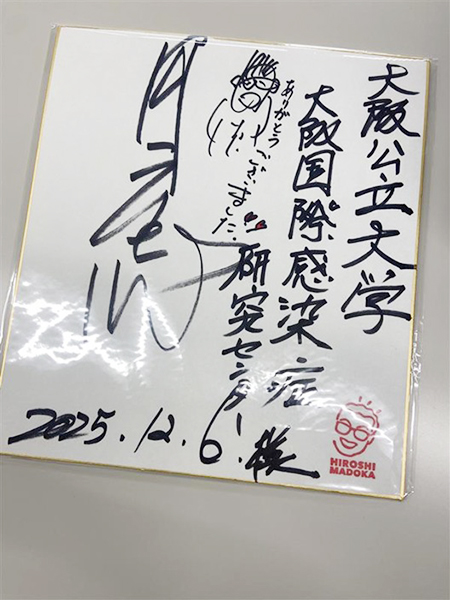 大阪公立大学
大阪国際感染症
研究センター様
ありがとうございました
円広志
2025.12.6.
HIROSHI
MADOKA